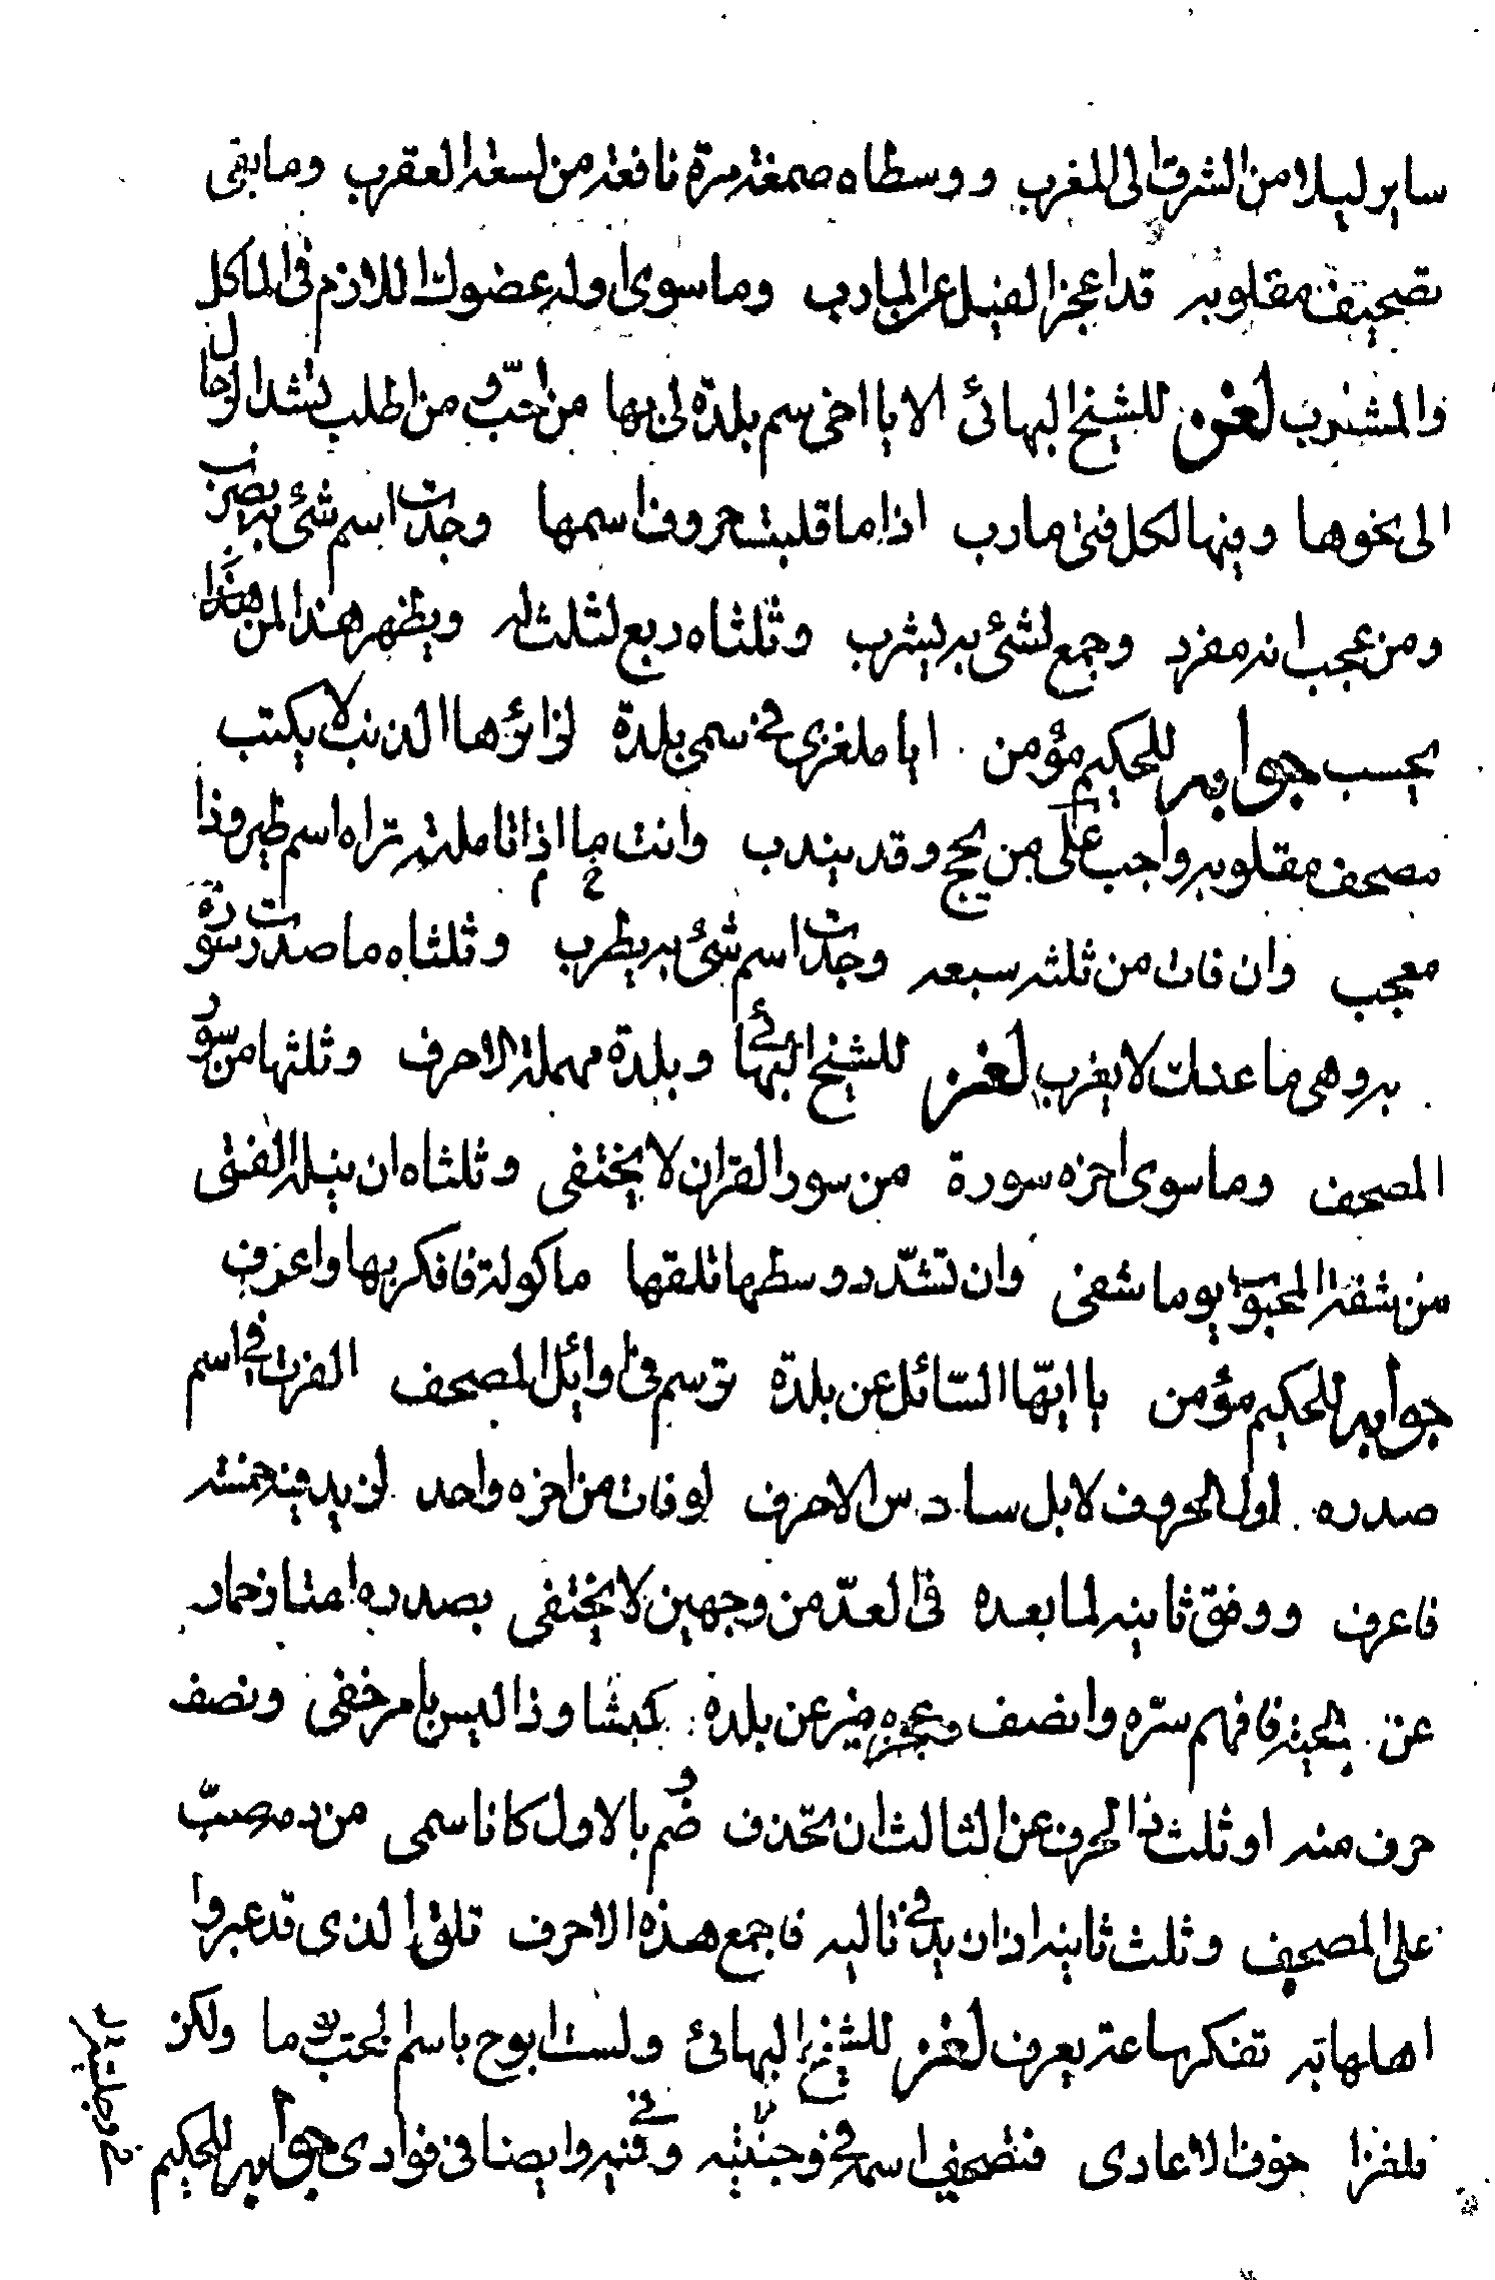 ساير ليلا من الشرق الى المغرب ووسطاه صمغة مرة نافعة من لسعة العقرب وما بقى
تصحيف مقلوبه قد اعجز الفيل عن المارب وما سوى اوله عضوك اللازم فى الماكل
والمشرب لغز للشيخ البهائى الا يا اخى سم بلدة لى بها من احبّ ومن اطلب تشد الرحال
الى نحوها وفيها لكل فتى مارب اذا ما قلبت حروف اسمها وجدت اسم شئ به يضرب
ومن عجب انه مفرد وجمع لشئ به يشرب وثلثاه ربع لثلث له ويظهر هذا لمن
يحسب جوابه للحكيم مؤمن ايا ملغزى فى سمى بلدة لزائرها الذنب لا يكتب
مصحف مقلوبه واجب على من يحج وقد يندب وانت اذا ما تاملته تراه اسم طير وذا
معجب وان فات من ثلثه سبعه وجدت اسم شئ به يطرب وثلثاه ما صدرت سورة
به وهى ما عندك لا يغرب لغز للشيخ البهائى وبلدة مهملة الاحرف وثلثها من سور
المصحف وما سوى اخره سورة من سور القران لا يختفى وثلثاه ان ينله الفتى
من شفة المحبوب يوما شفى وان تشدّد وسطها تلقها ماكولة فافكر بها واعرف
جوابه للحكيم مؤمن يا ايّها السّائل عن بلدة ترسم فى اوايل المصحف الفرات فى اسم
صدره اول الحروف لا بل سادس الاحرف لو فات من اخره واحد لزيد فيه خمسه
فاعرف ووفق ثانيه لما بعده فى العدّ من وجهين لا يختفى بصدره امتاز حمار
عن بلحيته فافهم سرّه وانصف وعجزه ميز عن بلدة كبشا وذا ليس بامر خفى ونصف
حرف منه او ثلث ذا الحرف عن الثالث ان تحذف ضم بالاول كانا سمى من
على المصحف وثلث ثانيه اذا زيد فى تاليه فاجمع هذه الاحرف تلق الذى قد عبروا
اهلها به تفكر ساعة يعرف لغز للشيخ البهائى ولست ابوح باسم الحب يوما ولكن
ملغزا خوف الاعادى فتصحيف اسمه فى وجنتيه وفى فيه وايضا فى فؤادى جوابه للحكيم